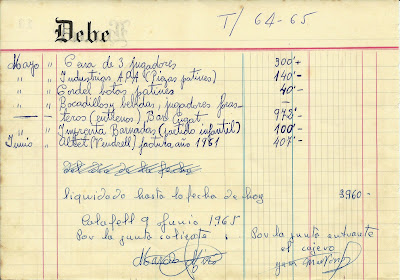 T/ 64-65
Debe
Mayo " Cena de 3 jugadores 300'-
" " Industrias ARA (Piezas patines) 140'-
" " Cordel botas patines 40'-
" " Bocadillos y bebidas, jugadores foras-
teros (entrenos), Bar Cugat 972'-
" " Imprenta Barnadas (partido infantil) 100'-
Junio " Albet (Vendrell) factura año 1961 407'-
del día de la fecha
liquidado hasta la fecha de hoy 3960-
Calafell 9 Junio 1965
Por la junta Por la junta entrante
el cajero